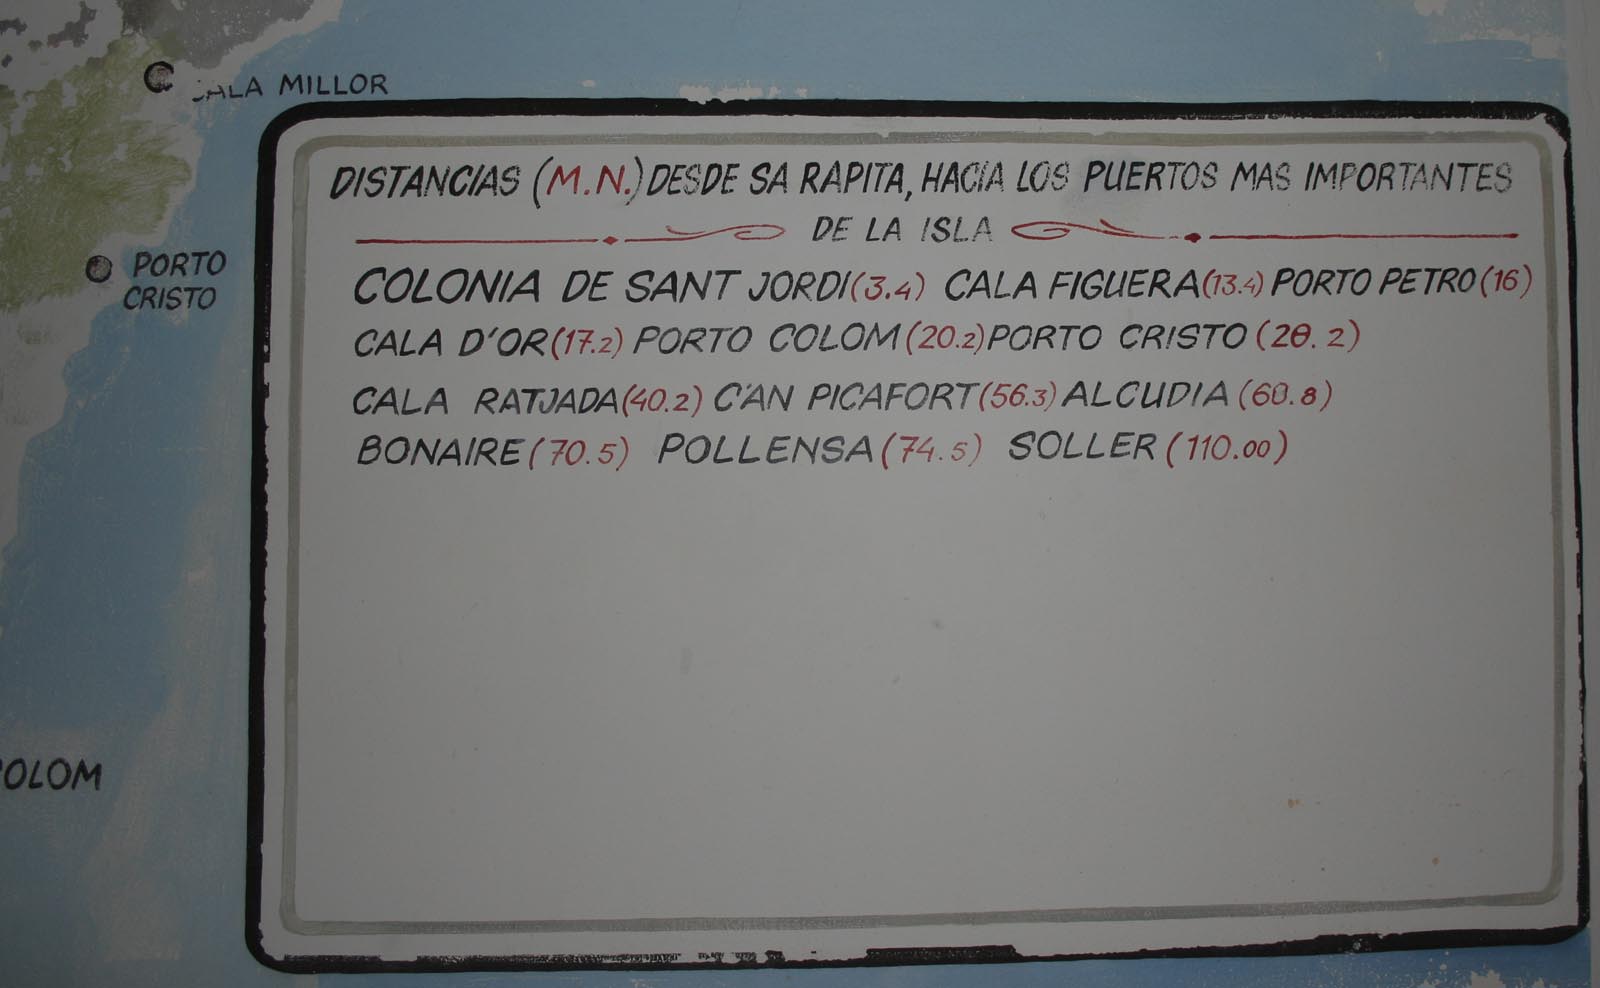 CALA MILLOR
PORTO
CRISTO
OLOM
DISTANCIAS (M.N.) DESDE SA RAPITA, HACIA LOS PUERTOS MAS IMPORTANTES
DE LA ISLA
COLONIA DE SANT JORDI (3.4) CALA FIGUERA (13.4) PORTO PETRO (16)
CALA D'OR (17.2) PORTO COLOM (20.2) PORTO CRISTO (28.2)
CALA RATJADA (40.2) C'AN PICAFORT (56.3) ALCUDIA (60.8)
BONAIRE (70.5) POLLENSA (74.5) SOLLER (110.00)